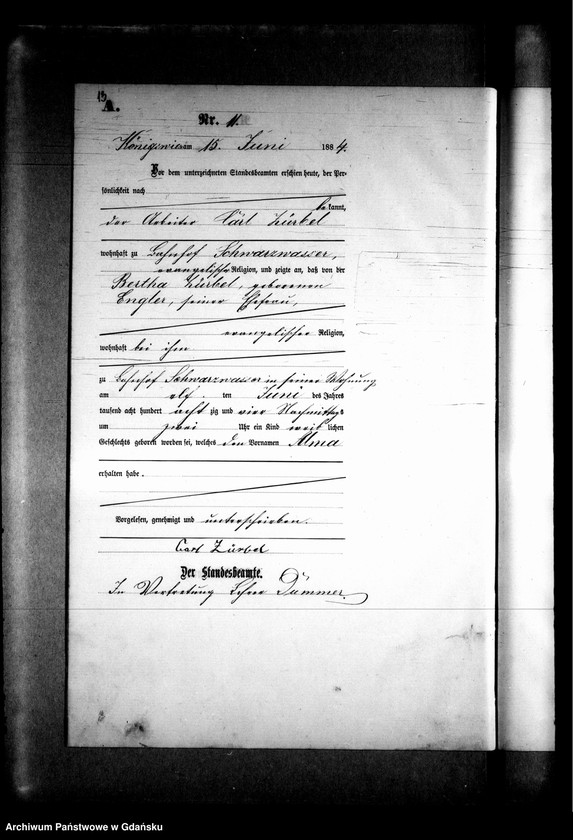 A.
Nr. 11.
am 15. Juni 1884.
Vor dem unterzeichneten Standesbeamten erschien heute, der Per-
sönlichkeit nach
bekannt,
der Arbeiter Carl Zürbel
wohnhaft zu Bahnhof Schwarzwasser,
evangelischer Religion, und zeigte an, daß von der
Bertha Zürbel, geborenen
Engler, seiner Ehefrau,
evangelischer Religion,
wohnhaft bei ihm
zu Bahnhof Schwarzwasser in seiner Wohnung
am elf ten Juni des Jahres
tausend acht hundert achtzig und vier Nachmittags
um zwei Uhr ein Kind weiblichen
Geschlechts geboren worden sei, welches den Vornamen Alma
erhalten habe.
Vorgelesen, genehmigt und unterschrieben.
Carl Zürbel
Der Standesbeamte.
In Vertretung Dümmer
Archiwum Państwowe w Gdańsku